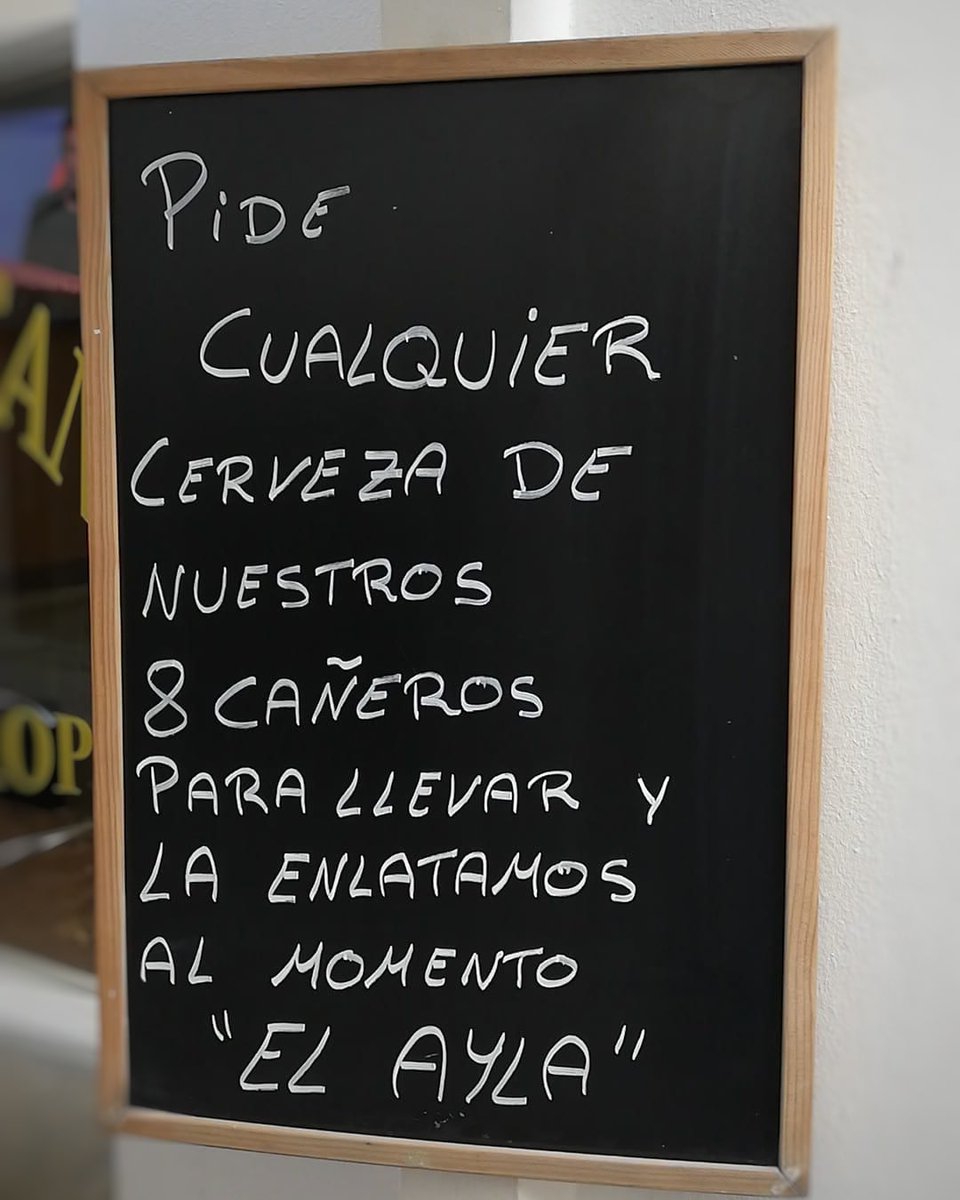 PiDE
CUALQUiER
CERVEZA DE
NUESTROS
8 CAÑEROS
PARA LLEVAR Y
LA ENLATAMOS
AL MOMENTO
"EL AYLA"
AN
OP